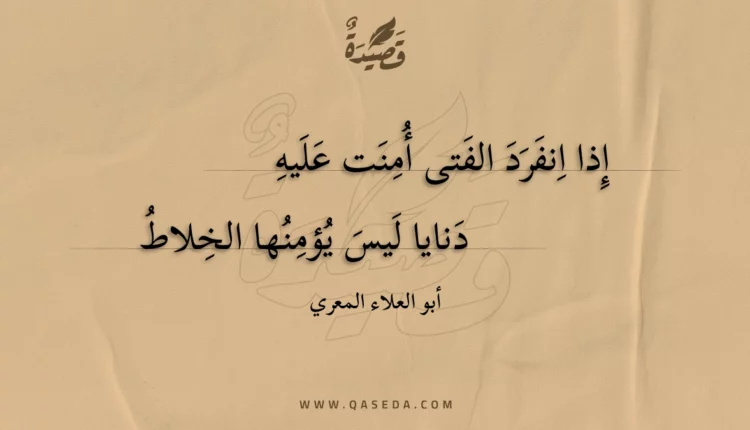 قَصِيْدَةٌ
إِذا اِنفَرَدَ الفَتى أُمِنَت عَلَيهِ
دَنايا لَيسَ يُؤمِنُها الخِلاطُ
أبو العلاء المعري
WWW.QASEDA.COM